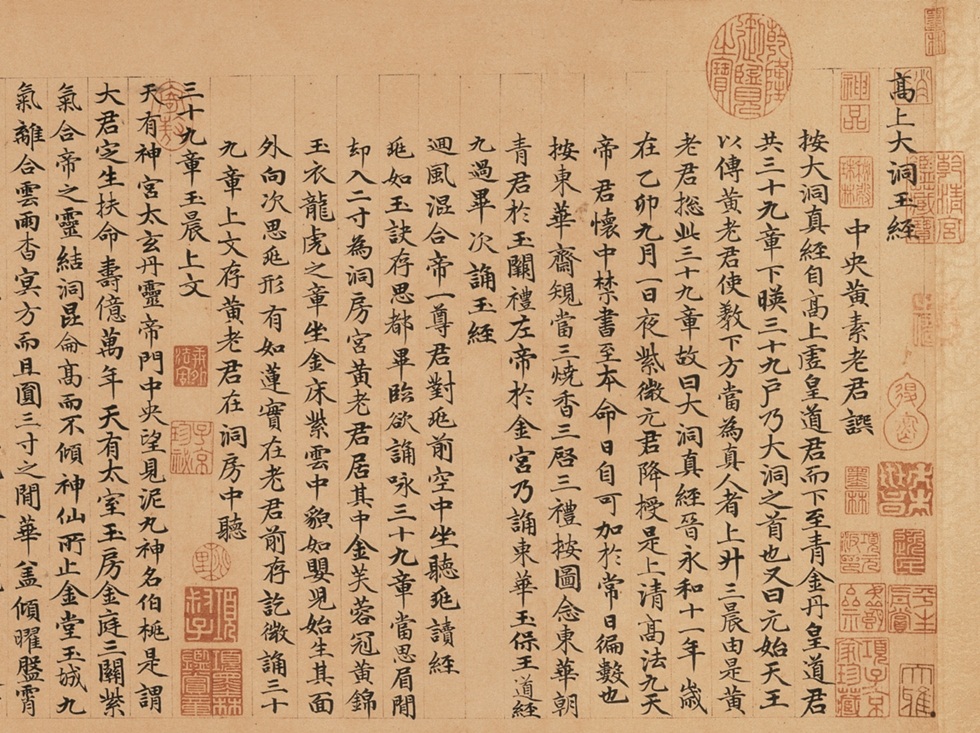 高上大洞玉經
中央黃素老君譔
按大洞真經自高上虛皇道君而下至青金丹皇道君
共三十九章下暎三十九戶乃大洞之首也又曰元始天王
以傳黃老君使教下方當為真人者上升三晨由是黃
老君捴此三十九章故曰大洞真經晉永和十一年歲
在乙卯九月一日夜紫微元君降授是上清高法九天
帝君懷中禁書至本命日自可加於常日徧數也
按東華齋規當三燒香三啓三禮按圖念東華朝
青君於玉闕禮左帝於金宮乃誦東華玉保王道經
九過畢次誦玉經
迴風混合帝一尊君對兆前空中坐聽兆讀經
兆如玉訣存思都畢臨欲誦咏三十九章當思眉間
却入二寸為洞房宮黃老君居其中金芙蓉冠黃錦
玉衣龍虎之章坐金床紫雲中貌如嬰兒始生其面
外向次思兆形有如蓮實在老君前存訖微誦三十
九章上文存黃老君在洞房中聽
三十九章玉晨上文
天有神宮太玄丹靈帝門中央望見泥丸神名伯桃是謂
大君定生扶命壽億萬年天有太室玉房金庭三關紫
氣合帝之靈結洞昆侖高而不傾神仙所止金堂玉城九
氣離合雲雨杳冥方而且圓三寸之間華盖傾曜盤霄
乾隆御覽之寶
乾清宮鑒藏寶
神品
墨林
平生真賞
項子京家珍藏
大雅
子京珍秘
項叔子
項墨林鑑賞章